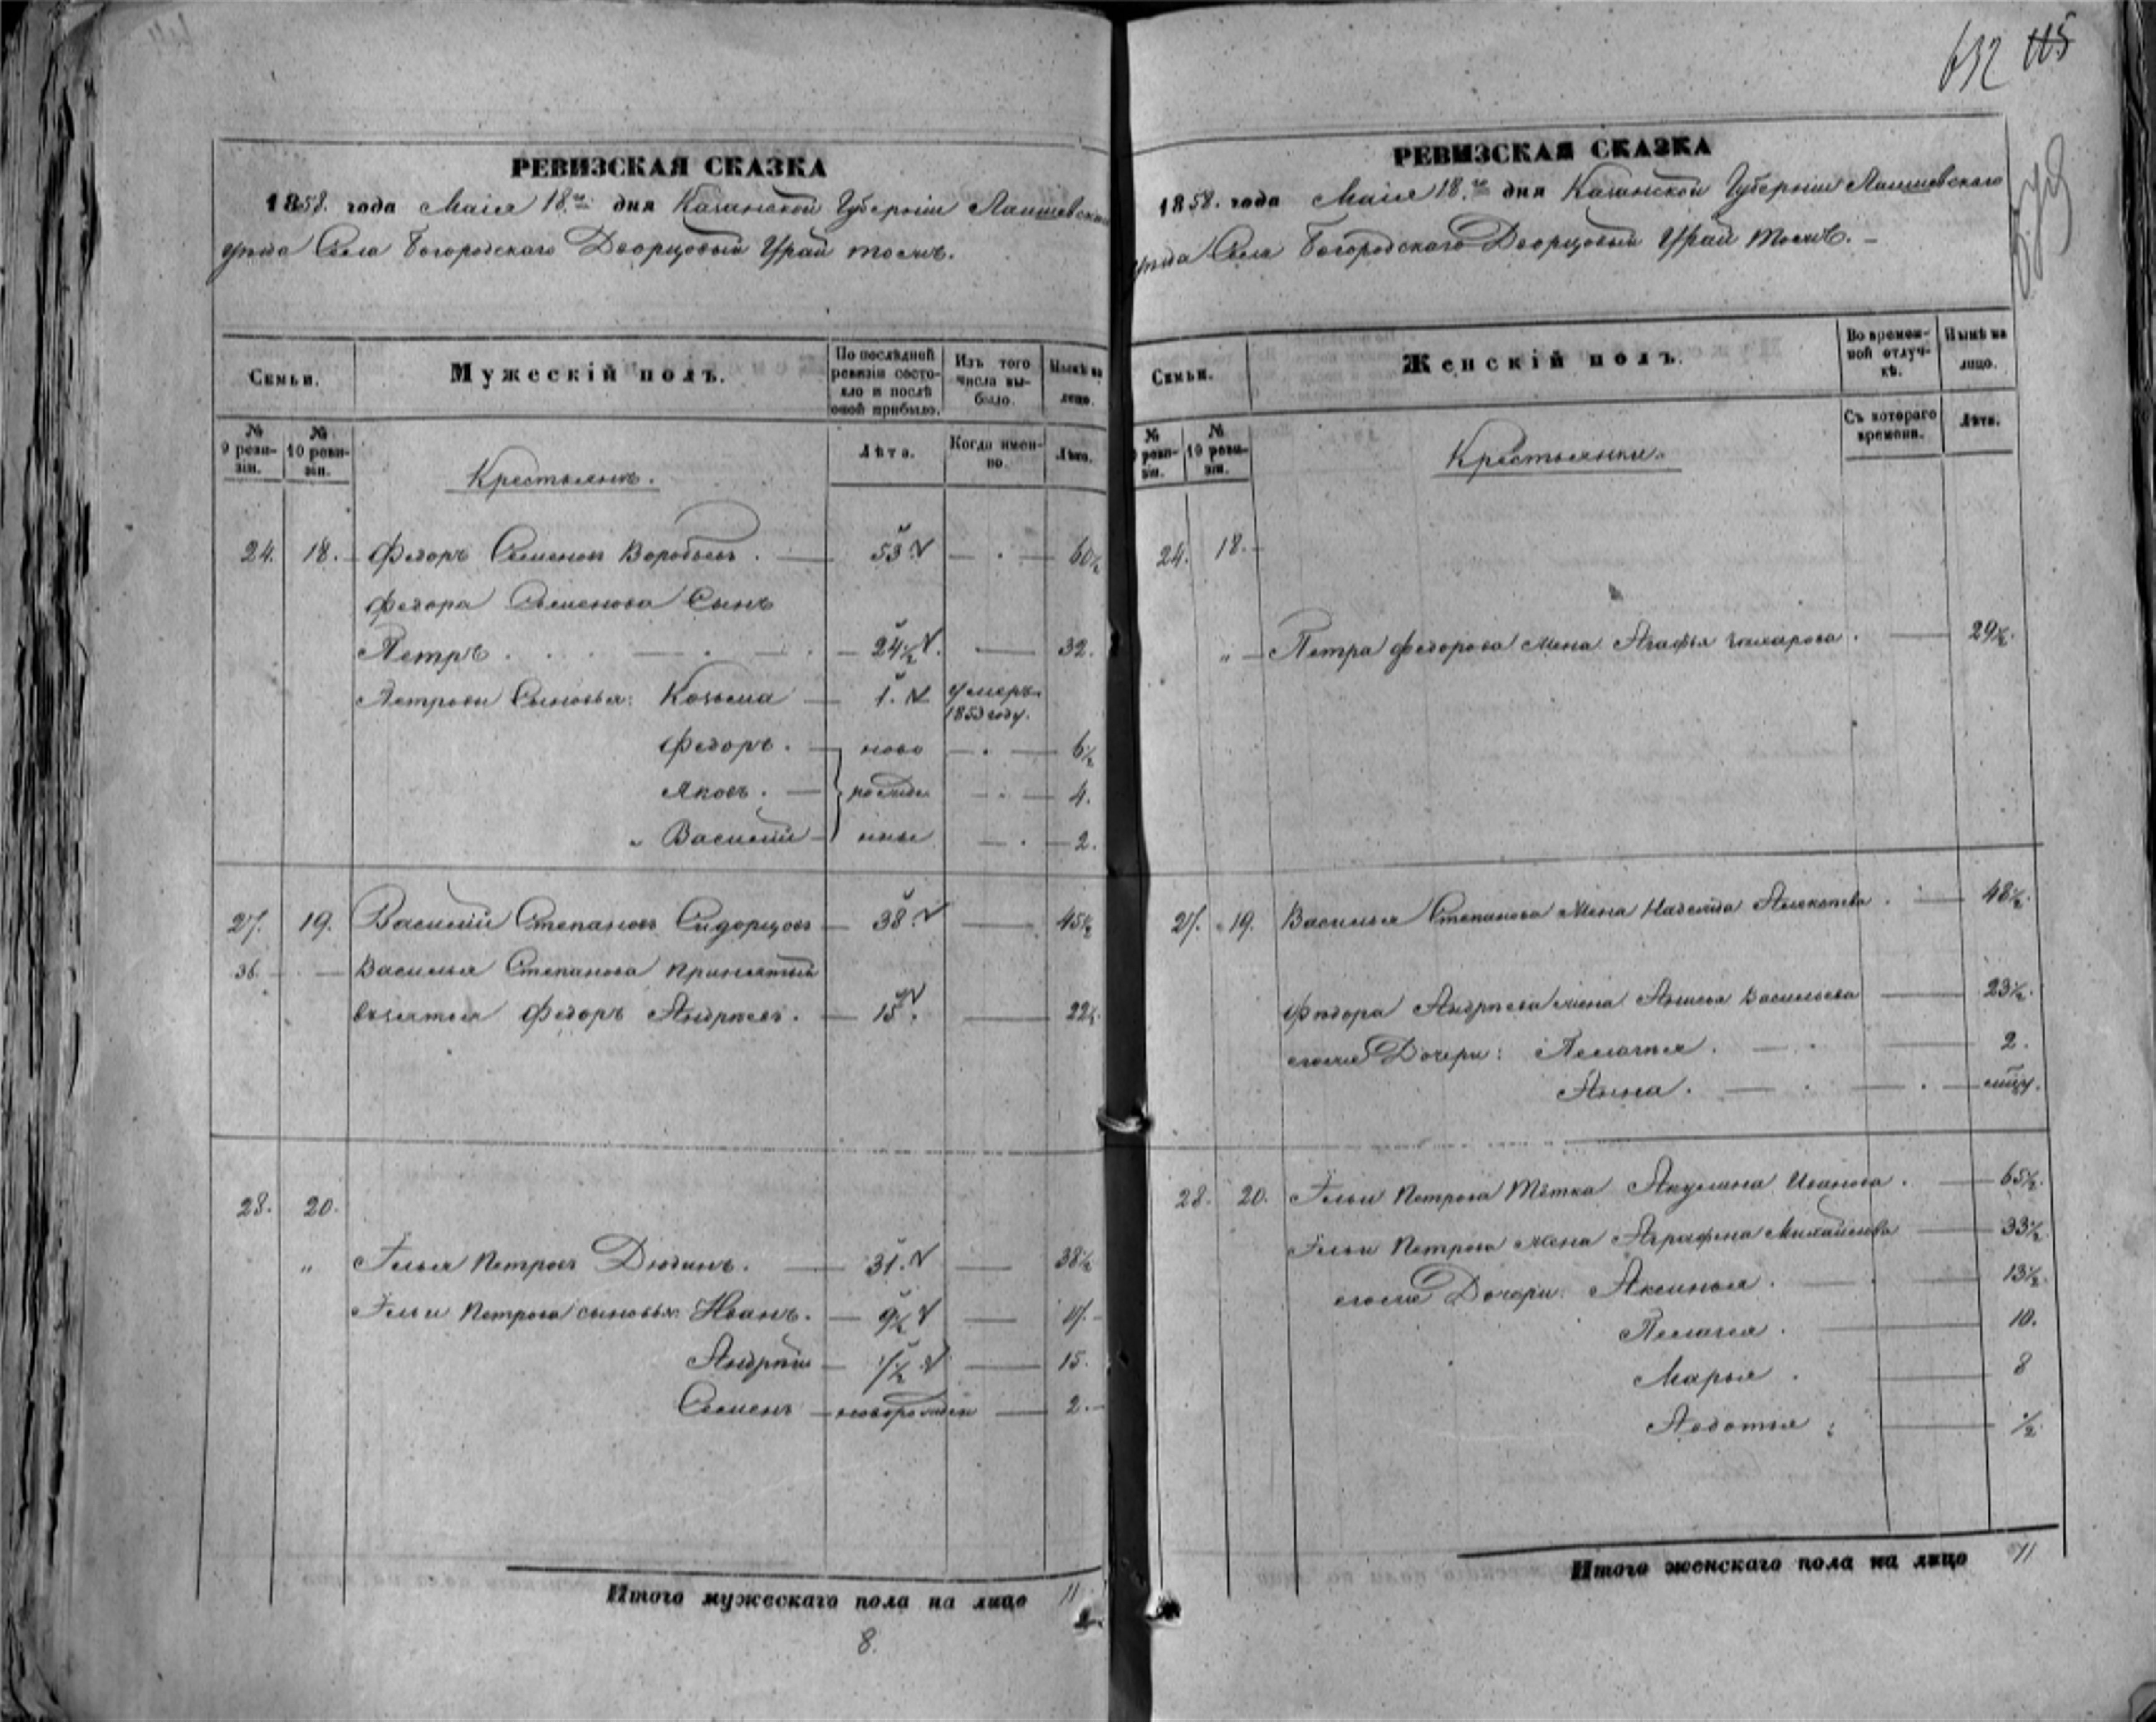 632 115
РЕВИЗСКАЯ СКАЗКА
1858. года Маія 18.го дня Казанской Губерніи Лаишевскаго
уѣзда Села Богородскаго Дворцовый Урай тожъ.
Семьи.
Мужескій полъ.
По послѣдней ревизіи состояло и послѣ оной прибыло.
Изъ того числа выбыло.
Нынѣ на лицо.
№ 9 ревизіи.
№ 10 ревизіи.
Лѣта.
Когда именно.
Лѣта.
Крестьянъ.
24. 18. Федоръ Семеновъ Воробьевъ. 53 60½
Федора Семенова Сынъ
Петръ 24½ 32.
Петровы Сыновья: Козьма 1. умеръ 1853 году.
Федоръ. ново 6½
Яковъ. рожде 4.
Василій нные 2.
27. 19. Василій Степановъ Сидорцовъ 38. 45½
36. Василья Степанова принятый
взятья Федоръ Андреевъ. 15. 22½
28. 20.
" Илья Петровъ Дюдинъ. 31. 38½
Ильи Петрова сыновья: Иванъ. 9½ 17.
Андрѣй 7½ 15.
Семенъ новорожден 2.
Итого мужескаго пола на лицо 11
8.
РЕВИЗСКАЯ СКАЗКА
1858. года Маія 18.го дня Казанской Губерніи Лаишевскаго
уѣзда Села Богородскаго Дворцовый Урай тожъ.
Семьи.
Женскій полъ.
Во временной отлучкѣ.
Нынѣ на лицо.
№ 9 ревизіи.
№ 10 ревизіи.
Съ котораго времени.
Лѣта.
Крестьянки.
24. 18.
" Петра Федорова жена Агафья Захарова. 29½.
27. 19. Василья Степанова жена Надежда Алексѣева. 48½.
Федора Андреева жена Анисья Васильева 23½.
егоже Дочери: Пелагея. 2.
Анна.
28. 20. Ильи Петрова тётка Акулина Иванова. 65½.
Ильи Петрова жена Аграфена Михайлова 33½.
егоже Дочери: Аксинья. 13½.
Пелагея. 10.
Марья. 8
Авдотья ½
Итого женскаго пола на лицо 11